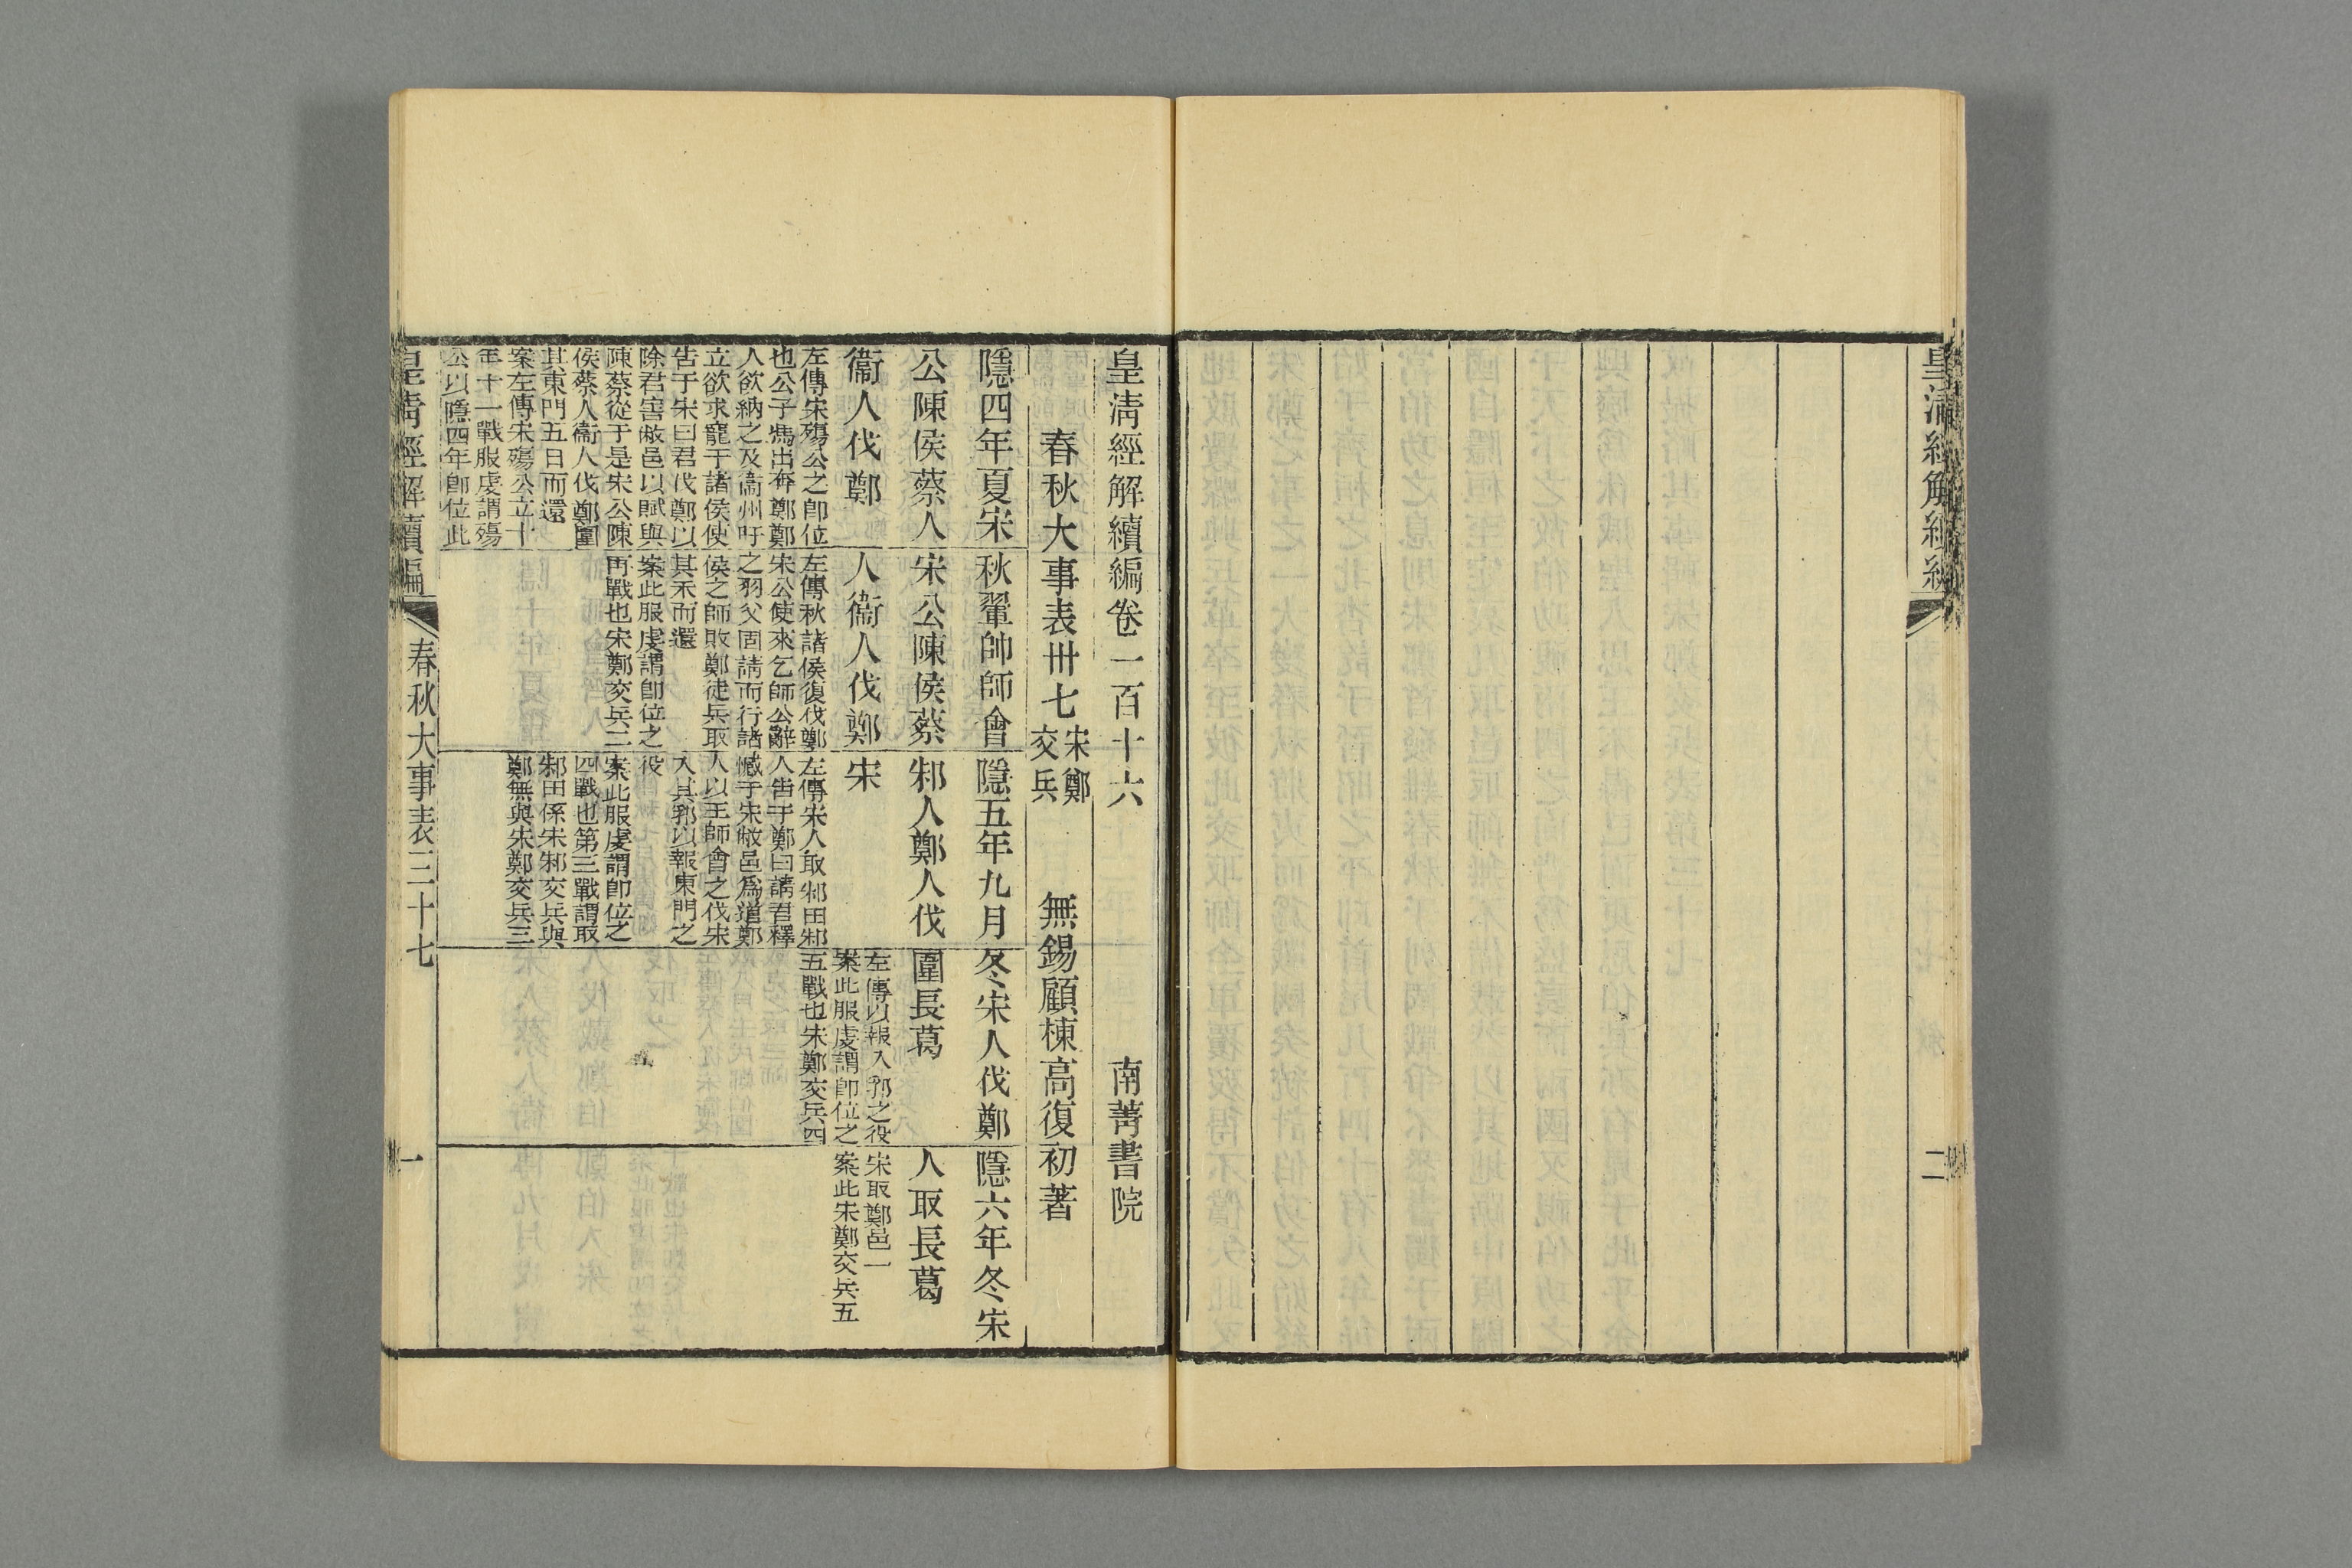 二
皇淸經解續編卷一百十六
南菁書院
春秋大事表卅七
宋鄭
交兵
無錫顧棟高復初著
隱四年夏宋
公陳侯蔡人
衞人伐鄭
左傳宋殤公之卽位
也公子馮出奔鄭鄭
人欲納之及衞州吁
立欲求寵于諸侯使
告于宋曰君伐鄭以
除君害敝邑以賦與
陳蔡從于是宋公陳
侯蔡人衞人伐鄭圍
其東門五日而還
案左傳宋殤公立十
年十一戰服虔謂殤
公以隱四年卽位此
秋翬帥師會
宋公陳侯蔡
人衞人伐鄭
左傳秋諸侯復伐鄭
宋公使來乞師公辭
之羽父固請而行諸
侯之師敗鄭徒兵取
其禾而還
案此服虔謂卽位之
再戰也宋鄭交兵二
隱五年九月
邾人鄭人伐
宋
左傳宋人取邾田邾
人告于鄭曰請君釋
憾于宋敝邑爲道鄭
人以王師會之伐宋
入其郛以報東門之
役
案此服虔謂卽位之
四戰也第三戰謂取
邾田係宋邾交兵與
鄭無與宋鄭交兵三
冬宋人伐鄭
圍長葛
左傳以報入郛之役
案此服虔謂卽位之
五戰也宋鄭交兵四
隱六年冬宋
人取長葛
宋取鄭邑一
案此宋鄭交兵五
皇淸經解續編
春秋大事表三十七
一